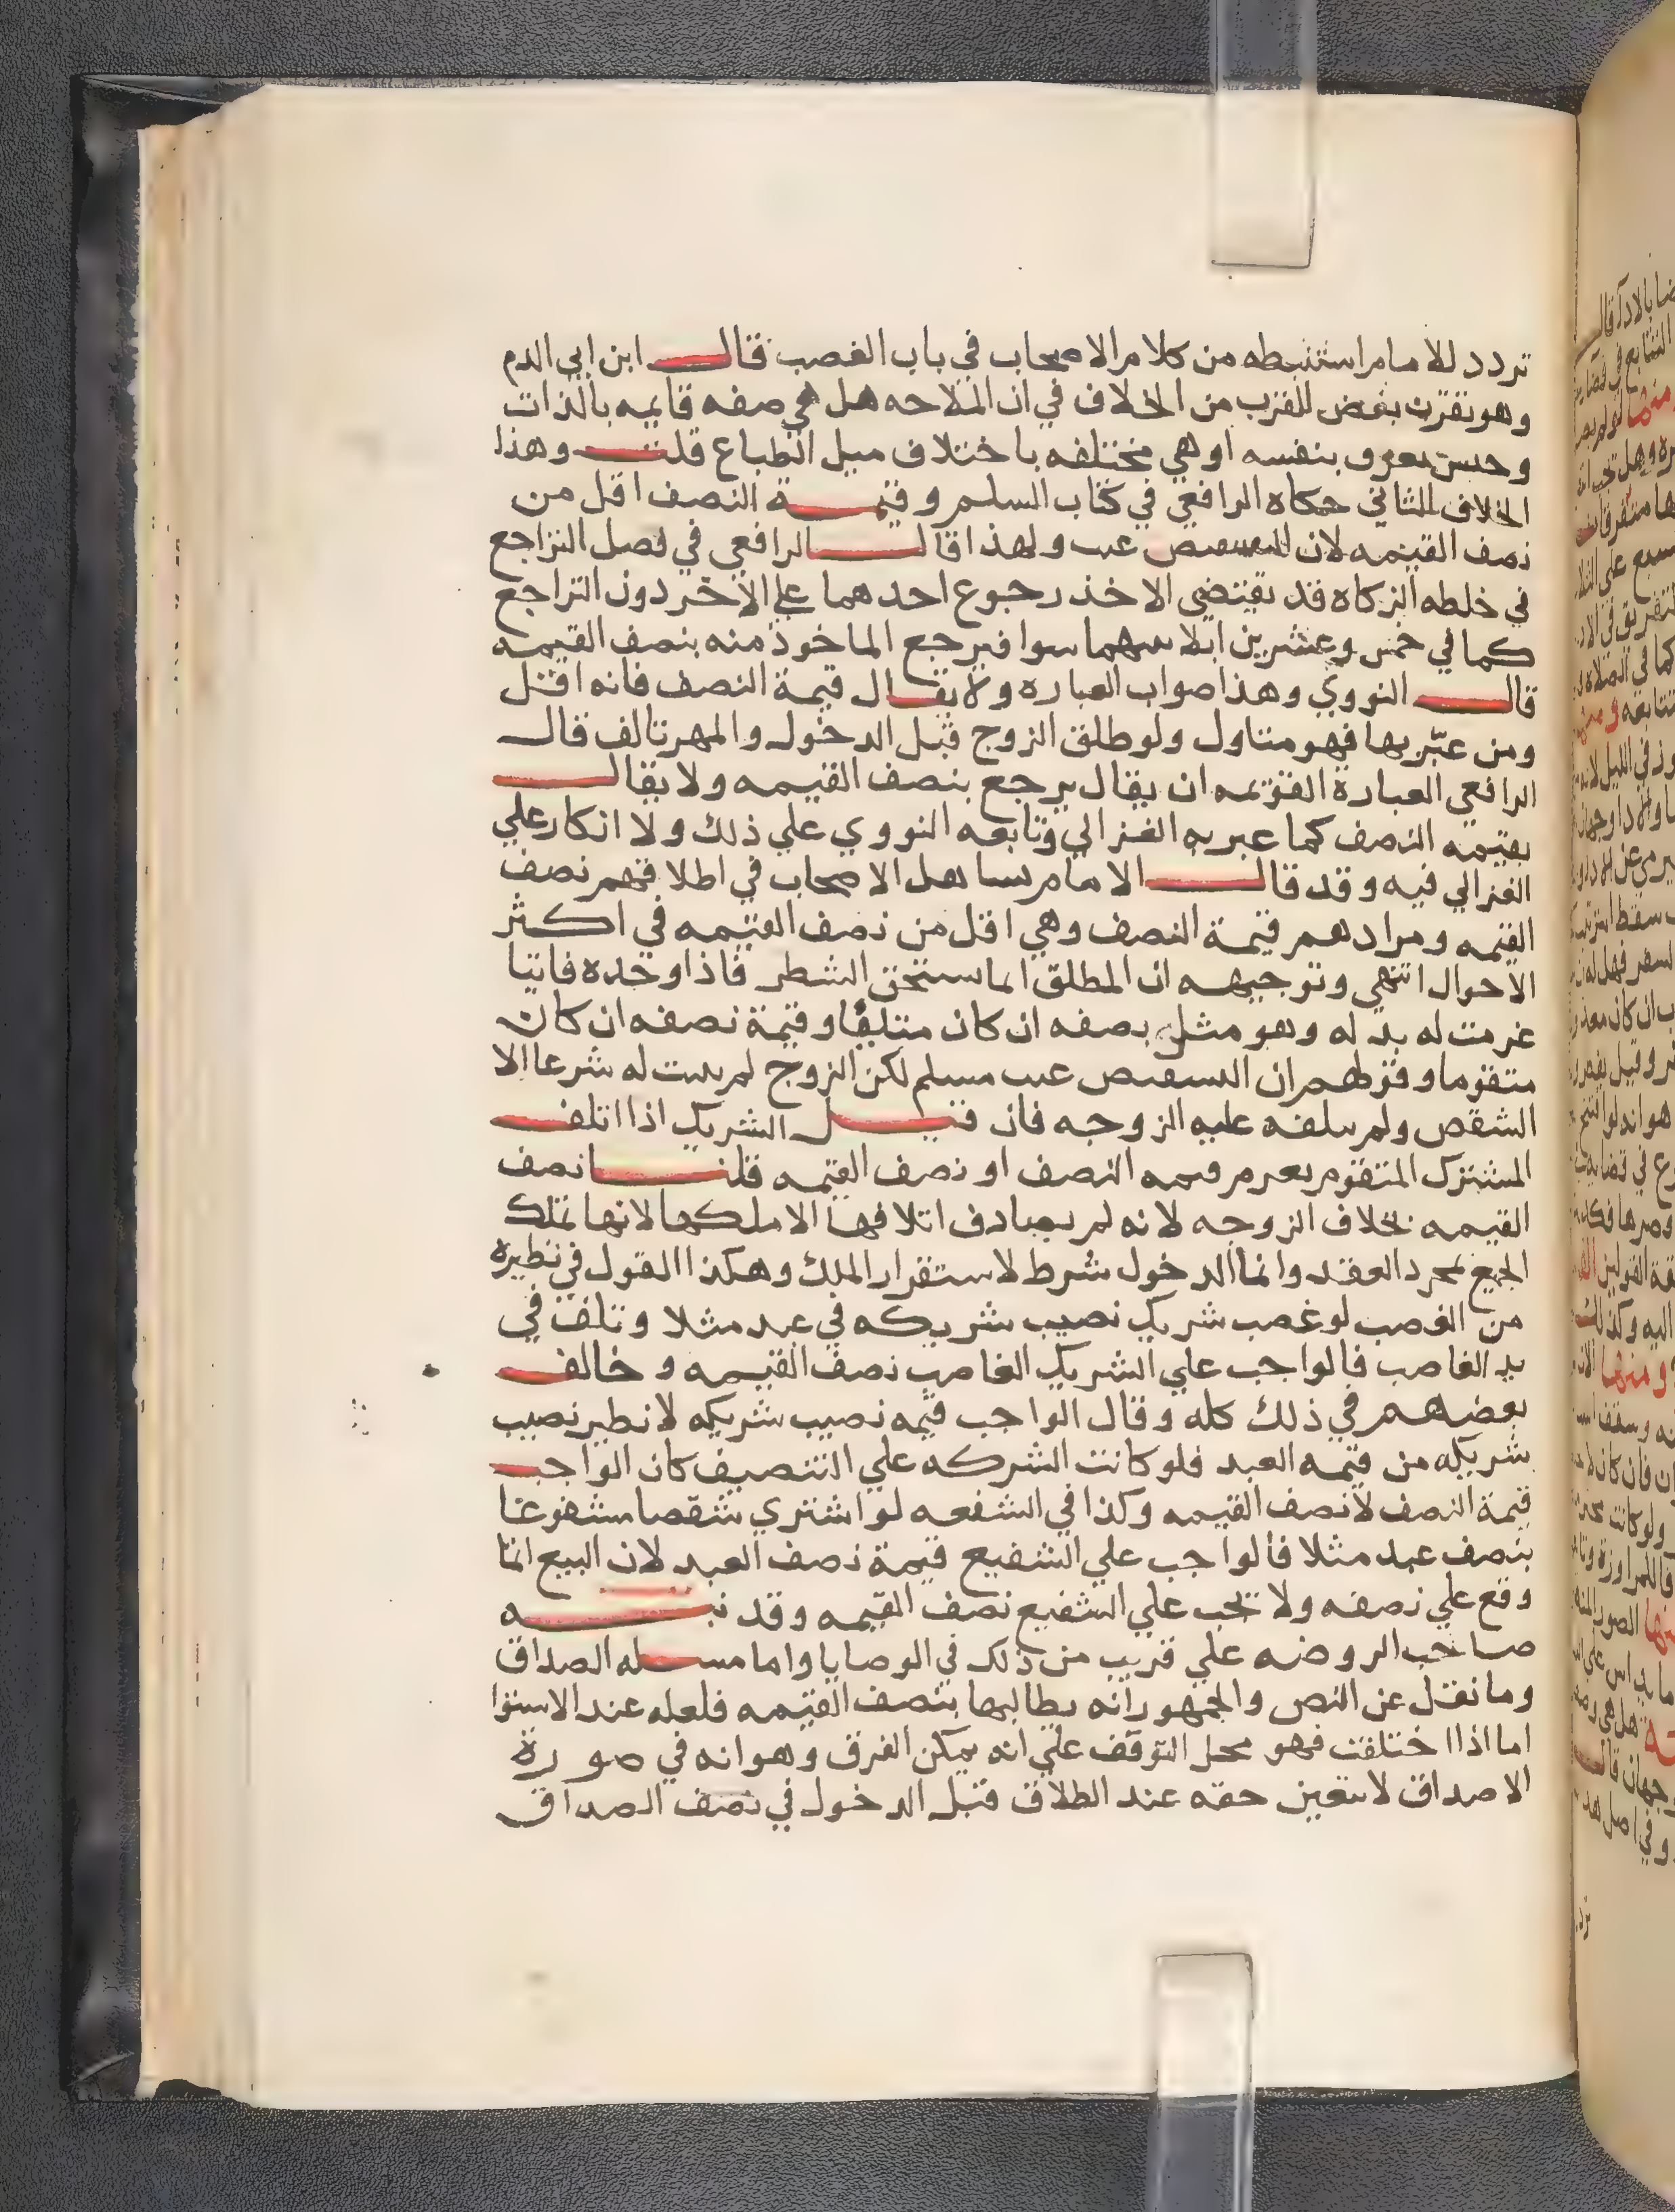 تردد للامام استنبطه من كلام الاصحاب في باب الغصب قال ابن ابي الدم
وهو نقرت بعض القرب من الخلاف في ان الملاحه هل هي صفه قايمه بالذات
وحسن معروف بنفسه او هي مختلفه باختلاف ميل الطباع قلت وهذا
الخلاف الثاني حكاه الرافعي في كتاب السلم وقيمة النصف اقل من
نصف القيمه لان التبعيض عيب ولهذا قال الرافعي في فصل التراجع
في خلطه الزكاه قد يقتضي الاخذ رجوع احدهما علي الاخر دون التراجع
كما في خمس وعشرين ابلا بينهما سوا فيرجع الماخوذ منه بنصف القيمه
قال النووي وهذا صواب العباره ولا يقال قيمة النصف فانه اقل
ومن عبّر بها فهو متاول ولو طلق الزوج قبل الدخول والمهر تالف قال
الرافعي العبارة القويمه ان يقال يرجع بنصف القيمه ولا يقال
بقيمه النصف كما عبر به الغزالي وتابعه النووي علي ذلك ولا انكار علي
الغزالي فيه وقد قال الامام تساهل الاصحاب في اطلاقهم نصف
القيمه ومرادهم قيمة النصف وهي اقل من نصف القيمه في اكثر
الاحوال انتهي وتوجيهه ان المطلق انما يستحق الشطر فاذا وجده فايتا
غرمت له بدله وهو مثل نصفه ان كان مثليا وقيمة نصفه ان كان
متقوما وقولهم ان التبعيض عيب مسلم لكن الزوج لم يثبت له شرعا الا
الشقص ولم يتلفه عليه الزوجه فان قيل الشريك اذا اتلف
المشترك المتقوم يغرم قيمه النصف او نصف القيمه قلنا نصف
القيمه بخلاف الزوجه لانه لم يصادف اتلافها الا ملكها لانها تملك
الجميع بمجرد العقد وانما الدخول شرط لاستقرار الملك وهكذا القول في نظيره
من الغصب لو غصب شريك نصيب شريكه في عبد مثلا وتلف في
يد الغاصب فالواجب علي الشريك الغاصب نصف القيمه وخالف
بعضهم في ذلك كله وقال الواجب قيمه نصيب شريكه لا نظير نصيب
شريكه من قيمه العبد فلو كانت الشركه علي التنصيف كان الواجب
قيمة النصف لا نصف القيمه وكذا في الشفعه لو اشتري شقصا مشفوعا
بنصف عبد مثلا فالواجب علي الشفيع قيمة نصف العبد لان البيع انما
وقع علي نصفه ولا تجب علي الشفيع نصف القيمه وقد نبه
صاحب الروضه علي قريب من ذلك في الوصايا واما مسله الصداق
وما نقل عن النص والجمهور انه يطالبها بنصف القيمه فلعله عند الاستوا
اما اذا اختلفت فهو محل التوقف علي انه يمكن الفرق وهو انه في صورة
الاصداق لا يتعين حقه عند الطلاق قبل الدخول في نصف الصداق